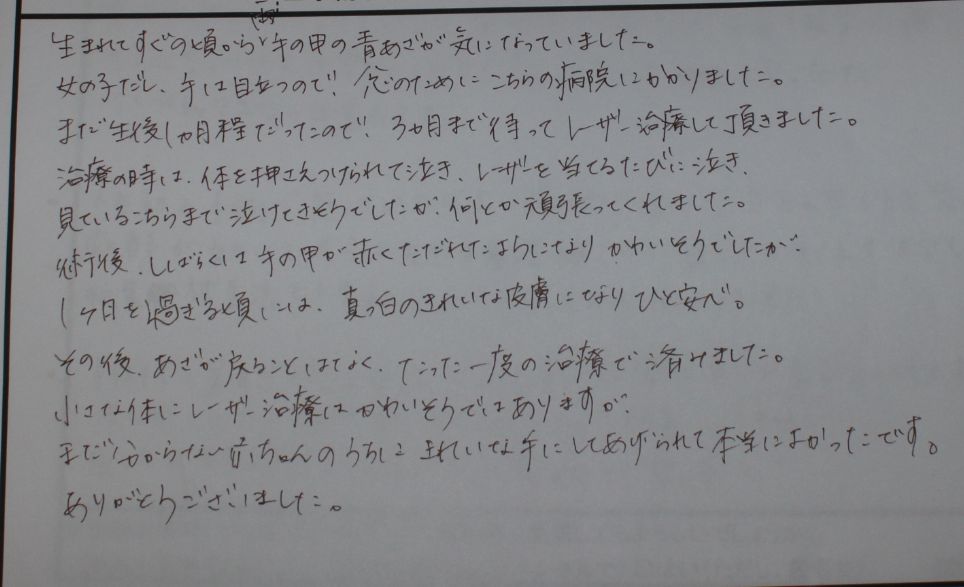 生まれてすぐの頃から手の甲の青あざが気になっていました。
女の子だし、手は目立つので、念のためにこちらの病院にかかりました。
まだ生後1カ月程だったので、3カ月まで待ってレーザー治療して頂きました。
治療の時は、体を押さえつけられて泣き、レーザーを当てるたびに泣き、
見ているこちらまで泣けてきそうでしたが、何とか頑張ってくれました。
術後、しばらくは手の甲が赤くただれたようになりかわいそうでしたが、
1ヶ月を過ぎる頃には、真っ白のきれいな皮膚になりひと安心。
その後、あざが戻ることはなく、たった一度の治療で済みました。
小さな体にレーザー治療はかわいそうではありますが、
まだ分からない赤ちゃんのうちにきれいな手にしてあげられて本当によかったです。
ありがとうございました。